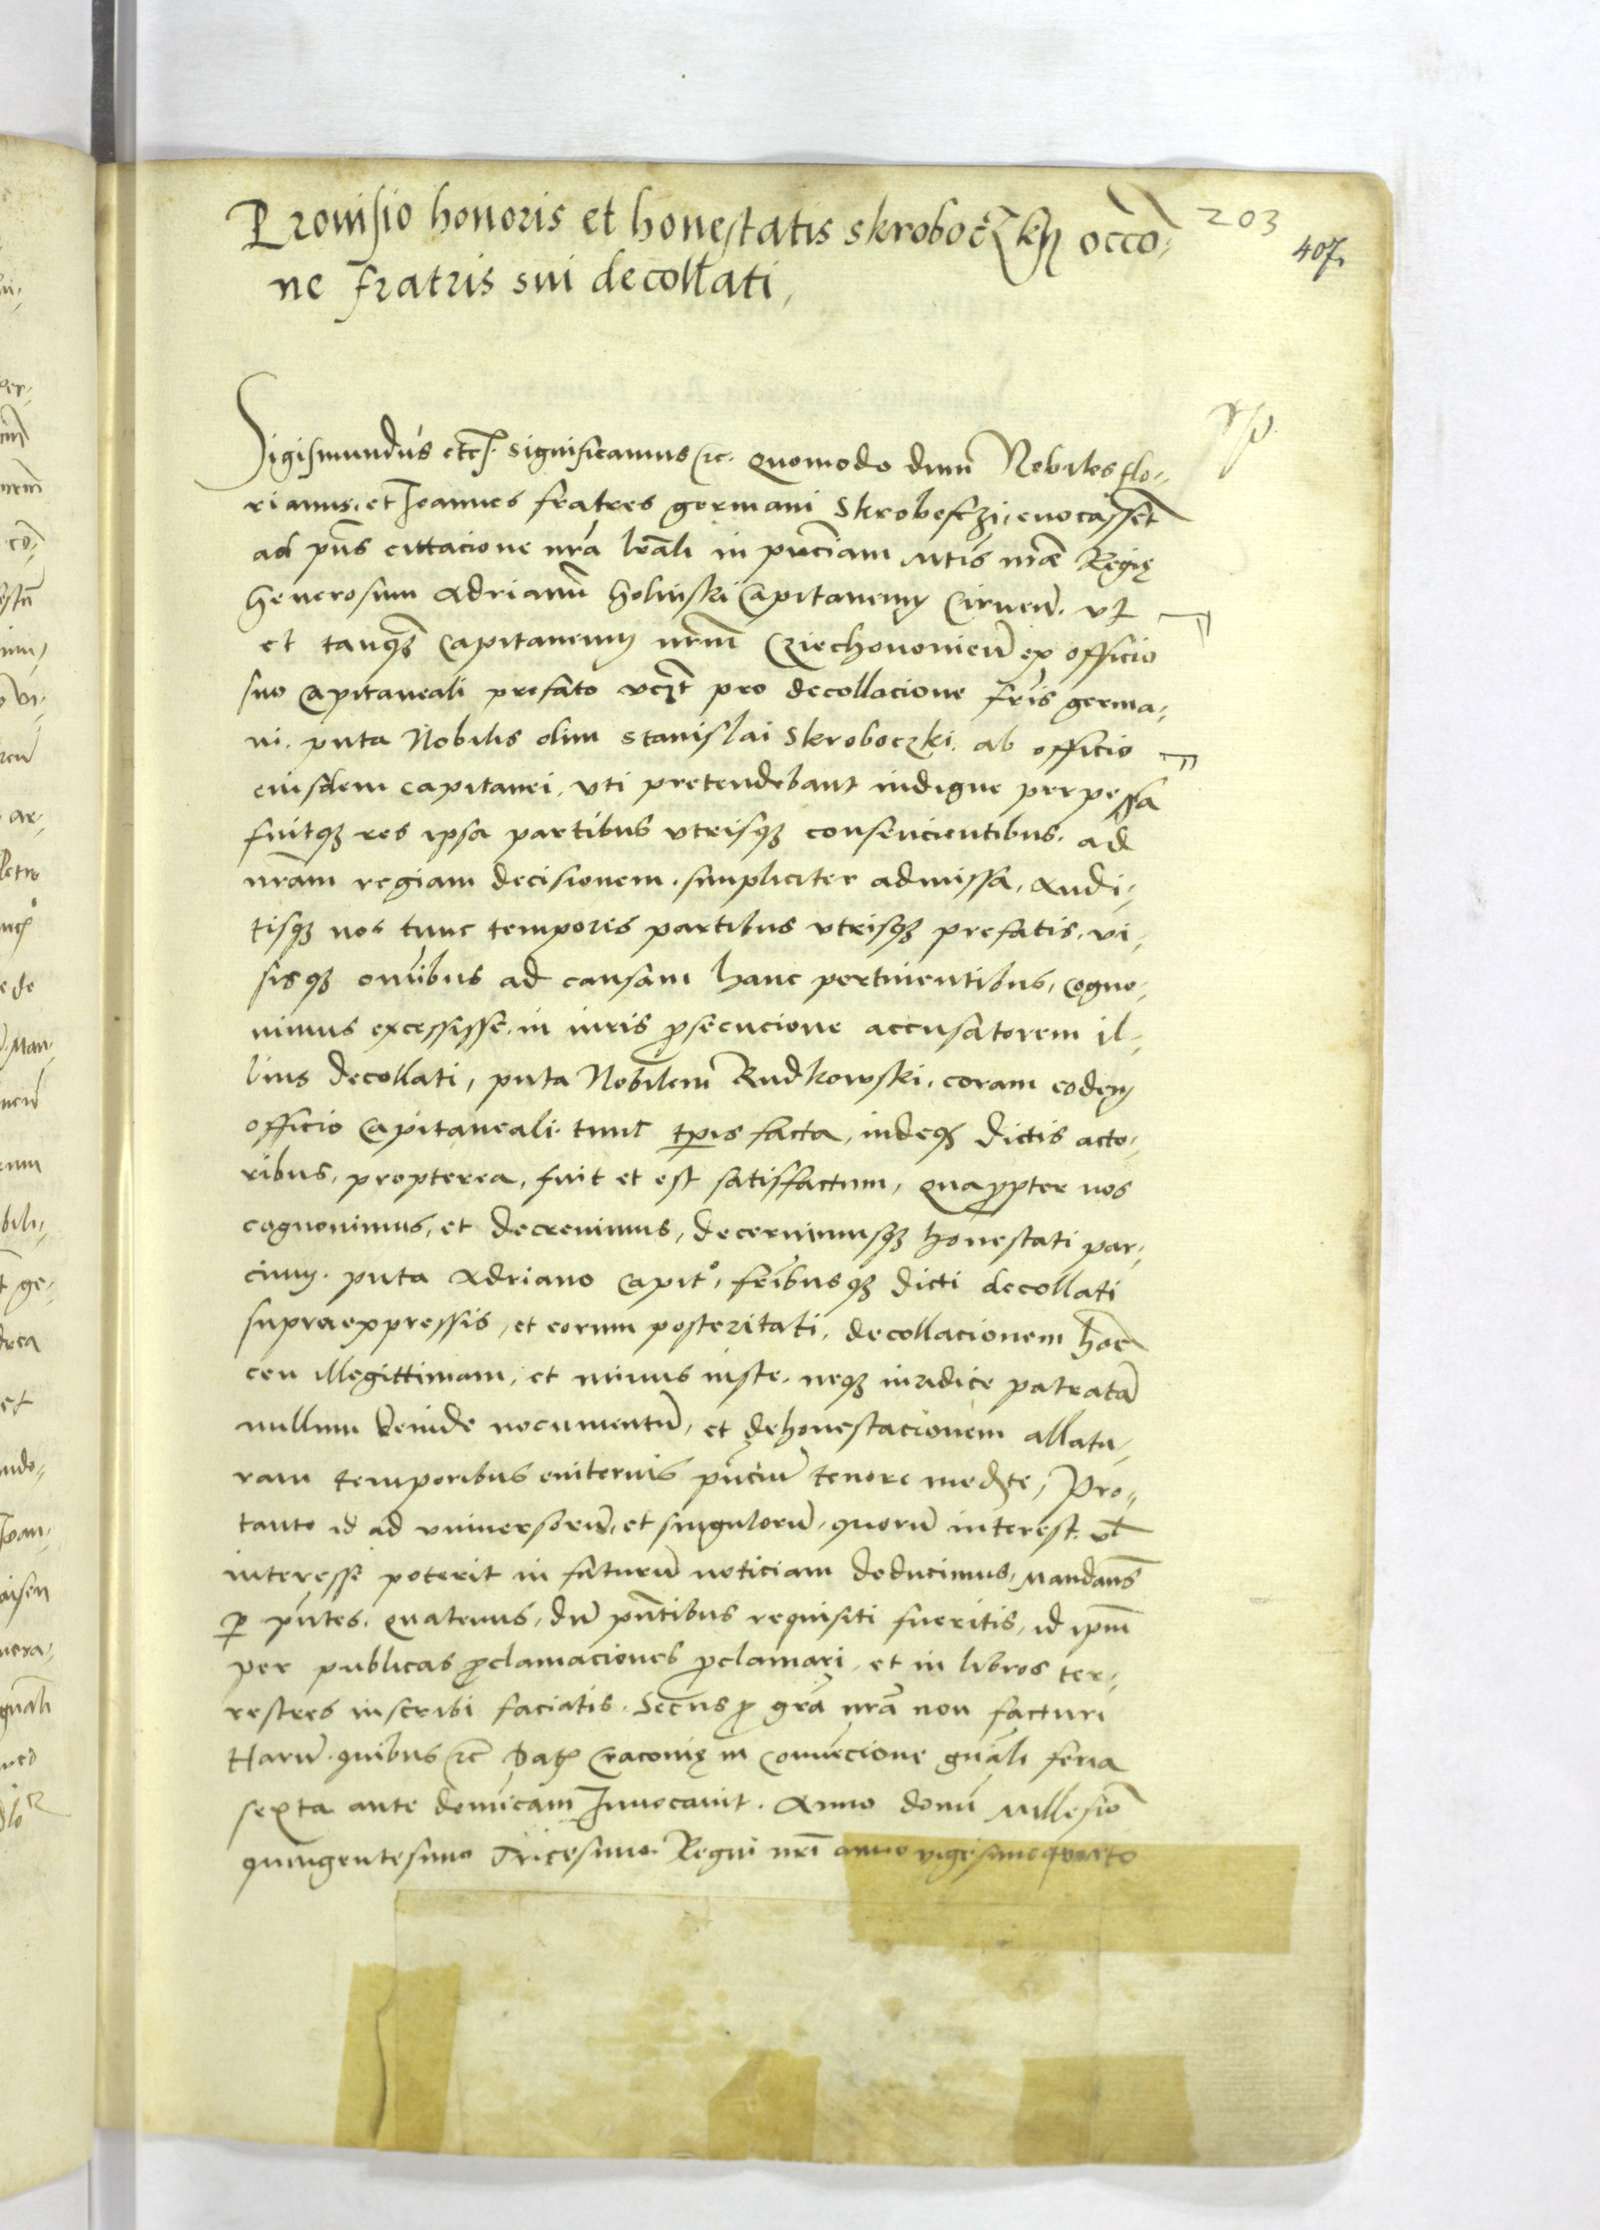 Provisio honoris et honestatis skroboczkij occo-
ne fratris sui decollati,
203
407.
Sigismundus etc. significamus etc. quomodo dum Nobiles Flo-
rianus, et Joannes fratres germani Skrobeczi, evocassent
ad pñs cittacione nrã lrãli in pñciam Mtis nrãe Regię
Generosum Adrianũ Holinski Capitaneum Cirnenñ. vt
et tanqȝ Capitaneum nrũm Cziechonoviensẽ ex officio
suo Capitaneali prefato vczt pro decollacione fris germa-
ni. puta Nobilis olim Stanislai Skroboczki. ab officio
eiusdem capitanei, vti pretendebant indigne perpessa
fuitqȝ res ipsa partibus vtrisqȝ consencientibus. ad
nrãm regiam decisionem. simpliciter admissa, Audi-
tisqȝ nos tunc temporis partibus vtrisqȝ prefatis, vi-
sisqȝ omĩbus ad causam hanc pertinentibus, cogno-
vimus excessisse, in iuris psecucione accusatorem il-
lius decollati, puta Nobilem Rudkowski, coram eodem
officio Capitaneali tunc tpris facta, indeqȝ dictis acto-
ribus, propterea, fuit et est satisffactum, quapropter nos
cognovimus, et decrevimus, decernimusqȝ honestati par-
cium. puta Adriano Capito, fribusqȝ dicti decollati
supraexpressis, et eorum posteritati, decollacionem hõc
ceu illegittimam, et minus iuste. neqȝ iuridice patratã
nullum deinde nocumentũ, et dehonestacionem allatu-
ram temporibus eviternis pñciũ tenore medẽte, Pro-
tanto id ad vniversorũ, et singulorũ, quorũ interest, vl
interesse poterit in futurũ noticiam deducimus, Mandañs
p pñtes. quatenus, dũ pñtibus requisiti fueritis, id ipm̃
per publicas pclamaciones pclamari, et in libros ter-
restres inscribi faciatis. Secus p grã nrã non facturi
Harũ quibus etc Datȝ Cracovię in Conuẽcione gnãli feria
sexta ante domĩcam Invocavit. Anno domi Millesiõ
quingentesimo Tricesimo. Regni nrĩ anno vigesimoquarto